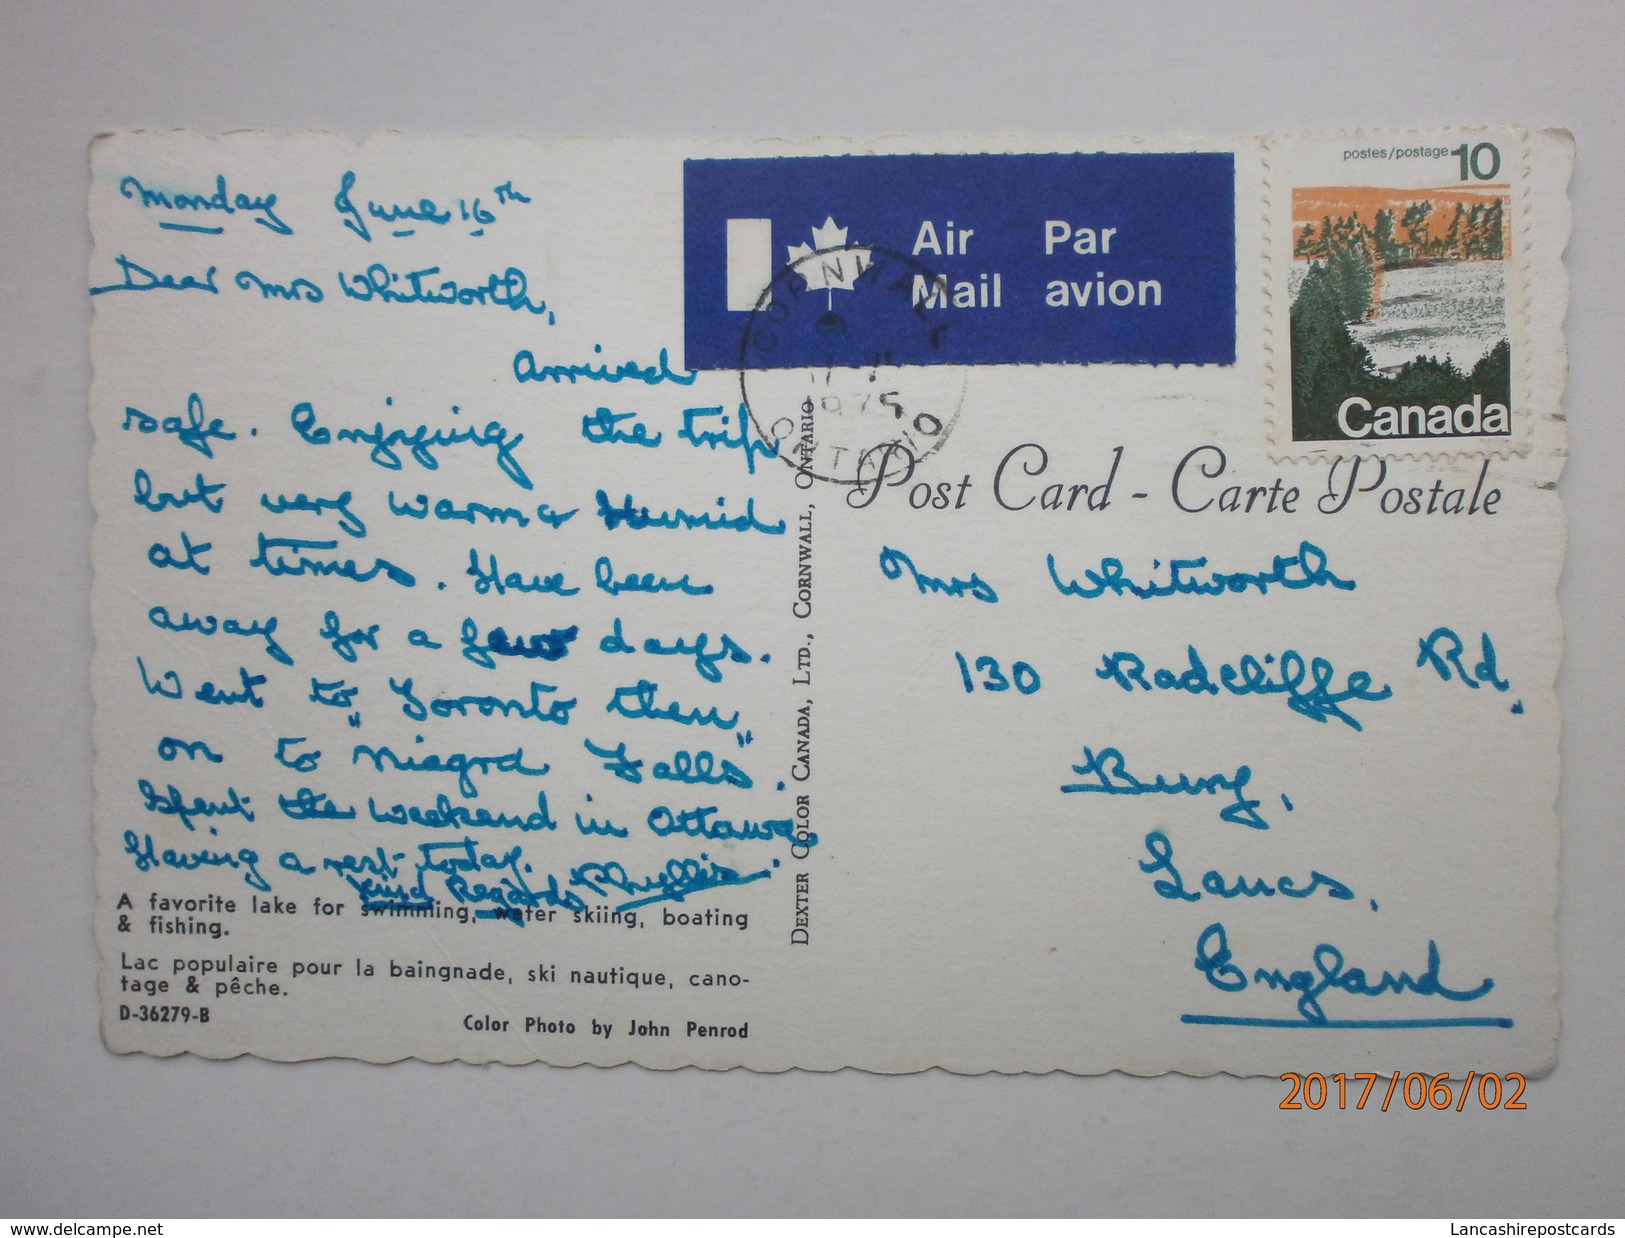 Monday June 16th
Dear Mrs Whitworth,
Arrived
safe. Enjoying the trip
but very warm & Humid
at times. Have been
away for a few days.
Went to Toronto then
on to "Niagra Falls".
Spent the weekend in Ottawa,
Having a rest today.
Kind Regards Phyllis.
A favorite lake for swimming, water skiing, boating
& fishing.
Lac populaire pour la baingnade, ski nautique, cano-
tage & pêche.
D-36279-B
Color Photo by John Penrod
DEXTER COLOR CANADA, LTD., CORNWALL, ONTARIO
Air Mail
Par avion
CORNWALL
1975
ONTARIO
postes/postage 10
Canada
Post Card - Carte Postale
Mrs Whitworth
130 Radcliffe Rd.
Bury,
Lancs,
England
2017/06/02
www.delcampe.net
Lancashirepostcards